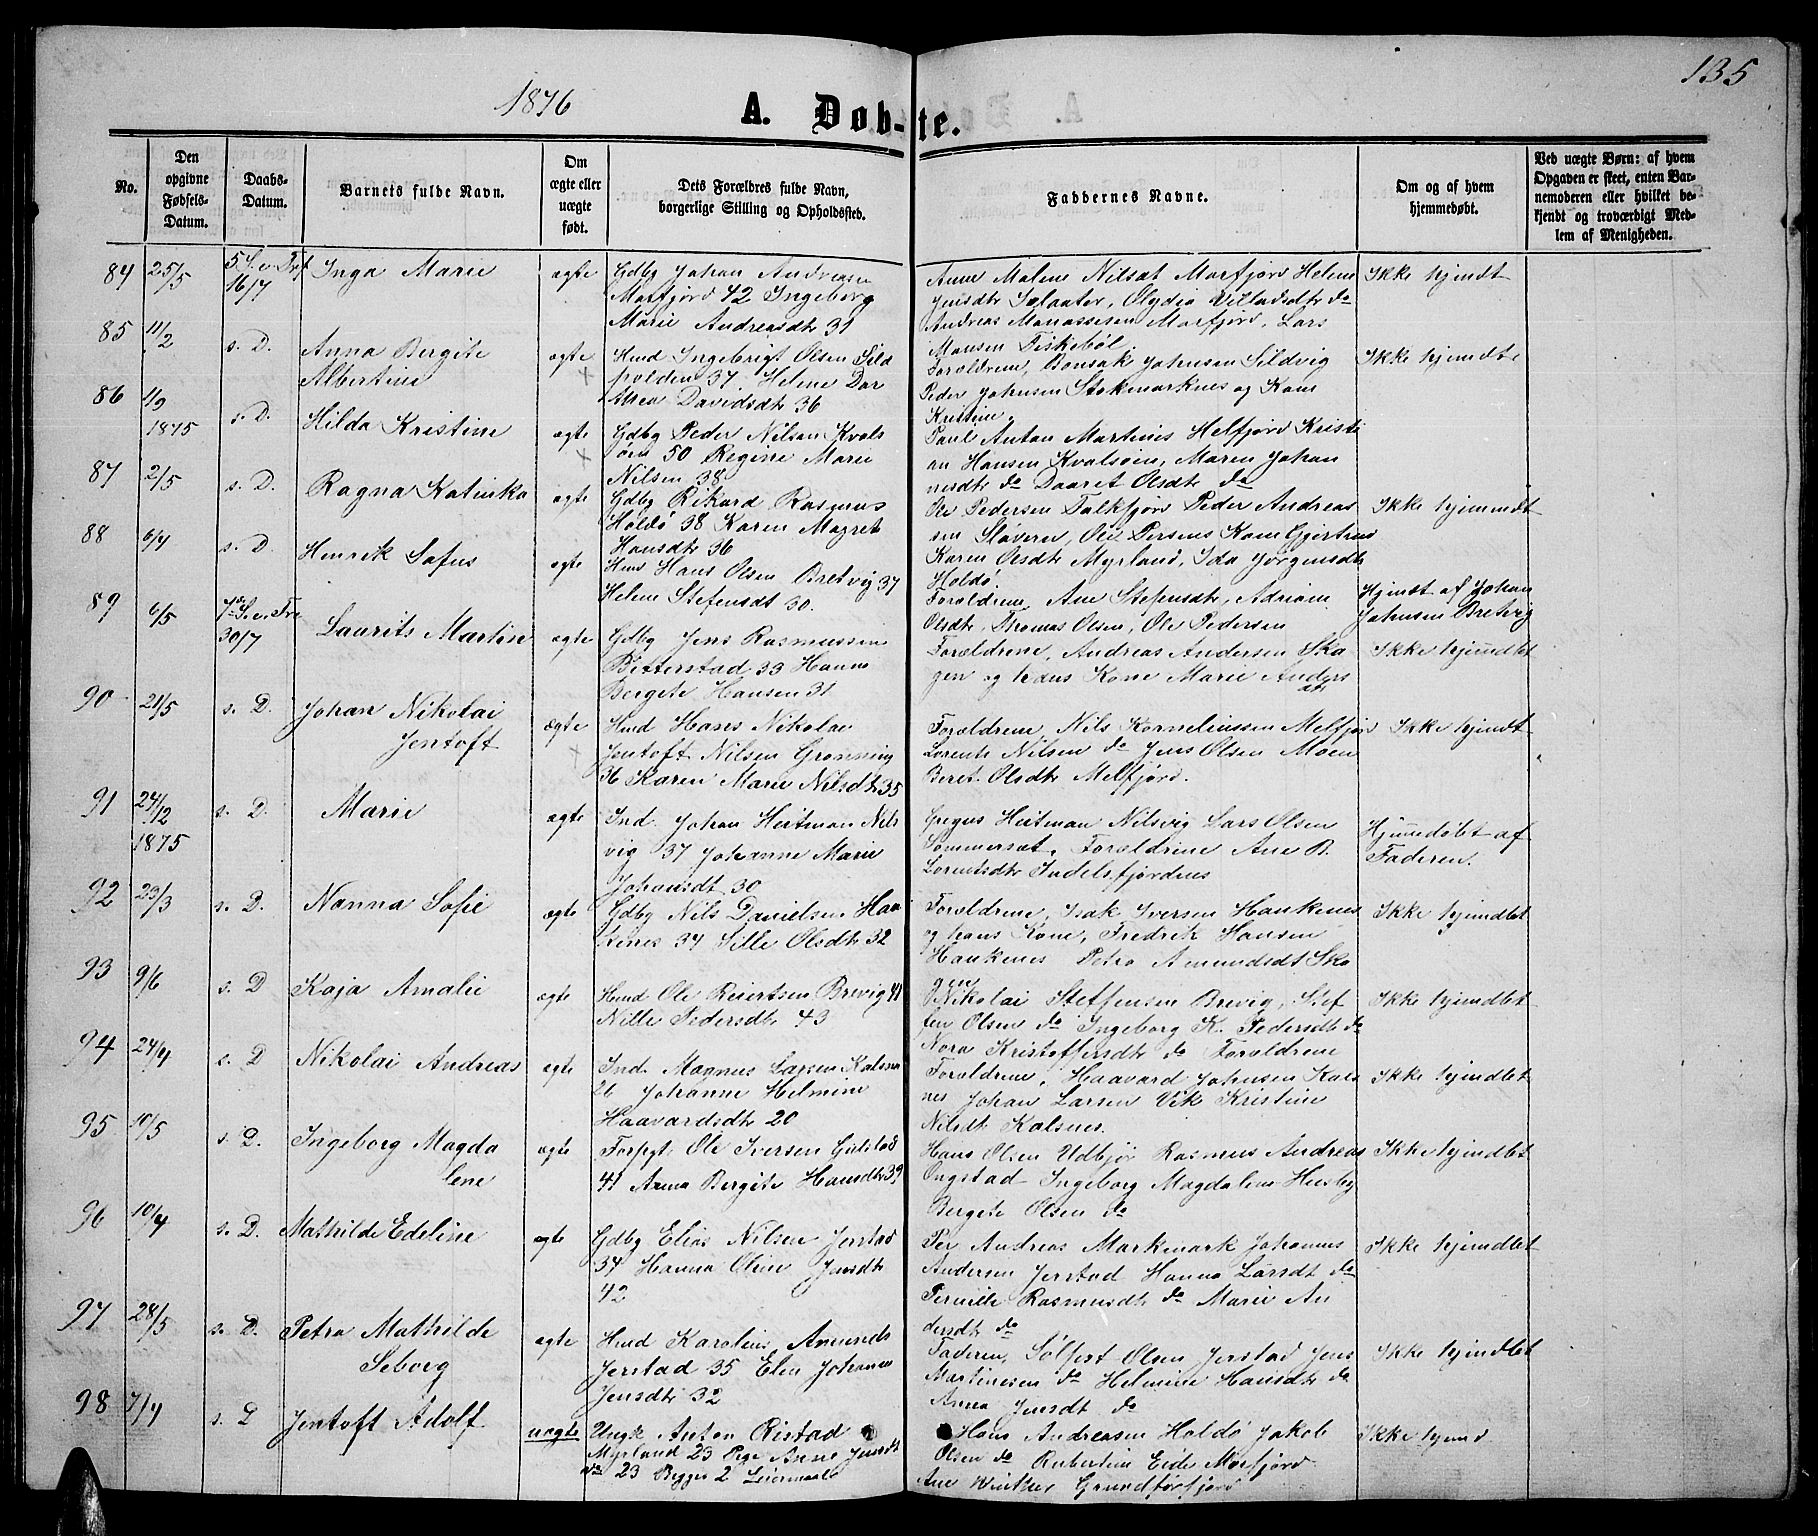 135
1876
A. Døb-te.
No.
Den opgivne Fødsels-Datum.
Daabs-Datum.
Barnets fulde Navn.
Om ægte eller uægte født.
Dets Forældres fulde Navn, borgerlige Stilling og Opholdssted.
Faddernes Navne.
Om og af hvem hjemmedøbt.
Ved uægte Børn: af hvem Opgaven er skeet, enten Barnemoderen eller hvilket bekjendt og troværdigt Medlem af Menigheden.
84 25/5 16/7 Inga Marie ægte Gdbg Johan Andreasen
Morfjord 42 Ingeborg
Marie Andreasdtr 31
Anne Malene Nilsdt Morfjord Helene
Jensdtr Olydia Villadsdtr do
Andreas Manassesen Morfjord, Lars
Monsen Fiskebøl
Ikke hjemdt
85 11/2 s. D. Anna Bergite
Albertine
ægte Hmd Ingebrigt Olsen Sild
polden 37 Helene Dor
thea Davidsdtr 36
Forældrene, Bonsak Johnsen Sildvig
Peder Johnsen Stokmarknes og Kone
Kristine
Ikke hjemdt
86 1/9 1875 s. D. Hilda Kristine ægte Gdbg Peder Nilsen Kvals
øen 50 Regine Marie
Nilsen 38
Paul Anton Martines Helfjord Kristi
an Hansen Kvalsøen, Maren Johan
nesdtr do Daaret Olsdtr do
87 2/5 s. D. Ragna Katinka ægte Gdbg Rikard Rasmus
Holdø 38 Karen Magret
Hansdtr 36
Ole Pedersen Falkfjord Peder Andreas
sen Sløveren, Ole Persens Kone Gjertrud
Karen Olsdtr Myrland, Ida Jørgensdtr
Holdø
Ikke hjemmdt
88 6/4 s. D. Henrik Sofus ægte Hans Olsen Bretvig 37
Helene Stefensdt 30.
Forældrene, Ane Stefensdtr, Adriane
Olsdtr, Thomas Olsen, Ole Pedersen
Hjemdt af Johan
Johnsen Bretvig
89 6/5 30/7 Laurits Martin ægte Gdbg Jens Rasmussen
Bitterstad 33 Hanna
Bergete Hansen 31
Forældrene, Andreas Andersen Ska
gen og hans Kone Marie Anders
dtr
Ikke hjemdbt
90 21/5 s. D. Johan Nikolai
Jentoft
ægte Hmd Hans Nikolai
Jentoft Nilsen Grønning
36 Karen Marie Nilsdtr 35
Forældrene, Nils Korneliussen Melfjord
Lorents Nilsen do Jens Olsen Moen
Beret Olsdtr Melfjord.
Ikke hjemdt
91 24/12 1875 s. D. Marie ægte Ind. Johan Heitman Nils
vig 37 Johanne Marie
Johansdt 30
Gregus Heitman Nilsvig Lars Olsen
Sommerset, Forældrene Ane B.
Lorentsdtr Indelsfjordnes
Hjemmedøbt af
Faderen.
92 23/3 s. D. Nanna Sofie ægte Gdbg Nils Danielsen Hau
kenes 34 Sille Olsdtr 32
Forældrene, Isak Iversen Haukenes
og hans Kone, Fredrik Hansen
Haukenes Petra Amundsdt Ska
gen
Ikke hjemdbt
93 9/6 s. D Kaja Amalie ægte Hmd Ole Reiertsen Brevig 41
Nille Pedersdtr 43
Nikolai Steffensen Brevig, Stef
fen Olsen do Ingeborg K. Pedersdtr do
Nora Kristoffersdtr do Forældrene
Ikke hjemdbt
94 24/4 s. D Nikolai Andreas ægte Ind. Magnus Larsen Kalsnes
26 Johanne Helmine
Haavardsdtr 20
Forældrene, Haavard Johnsen Kals
nes Johan Larsen Vik Kristine
Nilsdt Kalsnes.
Ikke hjemdbt
95 10/5 s. D. Ingeborg Magda
lene
ægte Forpgt. Ole Iversen Gulstad
41 Anna Bergite Hansdtr 39
Hans Olsen Udbjør Rasmus Andreas
Ongstad Ingeborg Magdalene Husby
Bergete Olsen do
Ikke hjemdbt
96 10/4 s. D. Mathilde Edeline ægte Gdbg Elias Nilsen Jerstad
34 Hanna Oline Jensdtr
42
Per Andreas Markmark Johannes
Andersen Jerstad Hanna Larsdt do
Pernille Rasmusdtr do Marie An
dersdtr do
Ikke hjemdbt
97 28/5 s. D. Petra Mathilde
Seborg
ægte Hmd Karolius Amunds
Jerstad 35 Elen Johanna
Jensdtr 32
Faderen, Sølfest Olsen Jerstad Jens
Martinesen do Helmine Hansdtr do
Anna Jensdt do
Ikke hjemdbt
98 7/4 s. D Jentoft Adolf uægte Ungk Anton Ristad
Myrland 23 Pige Anne Jensdt
do 23 Begges 2 Leiermaal
Hans Andreasen Holdø Jakob
Olsen do Rubertine Eide Morfjord
Ane Winther Grundførfjord
Ikke hjemd